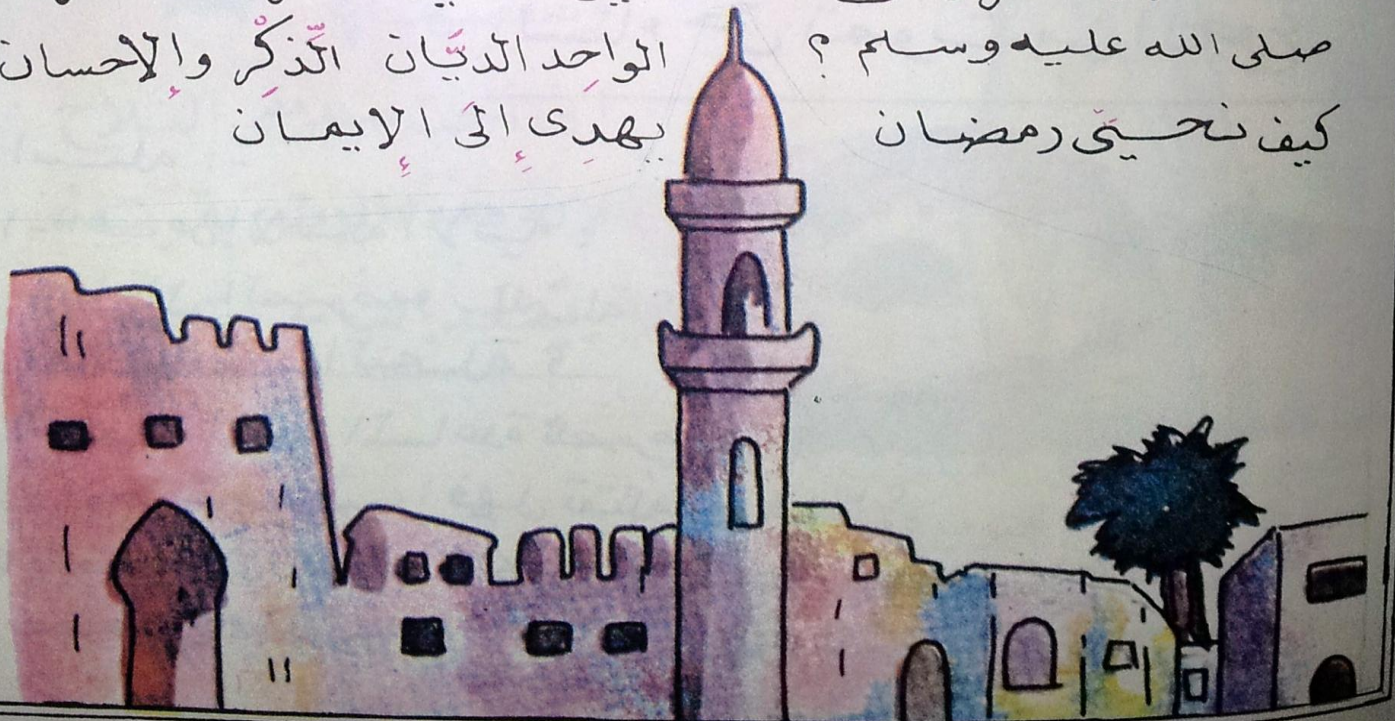 صلى الله عليه وسلم ؟
كيف نحيّى رمضان
الواحِد الديَّان الذِّكْرِ والإحسان
يهدِى إِلَى الإِيمان